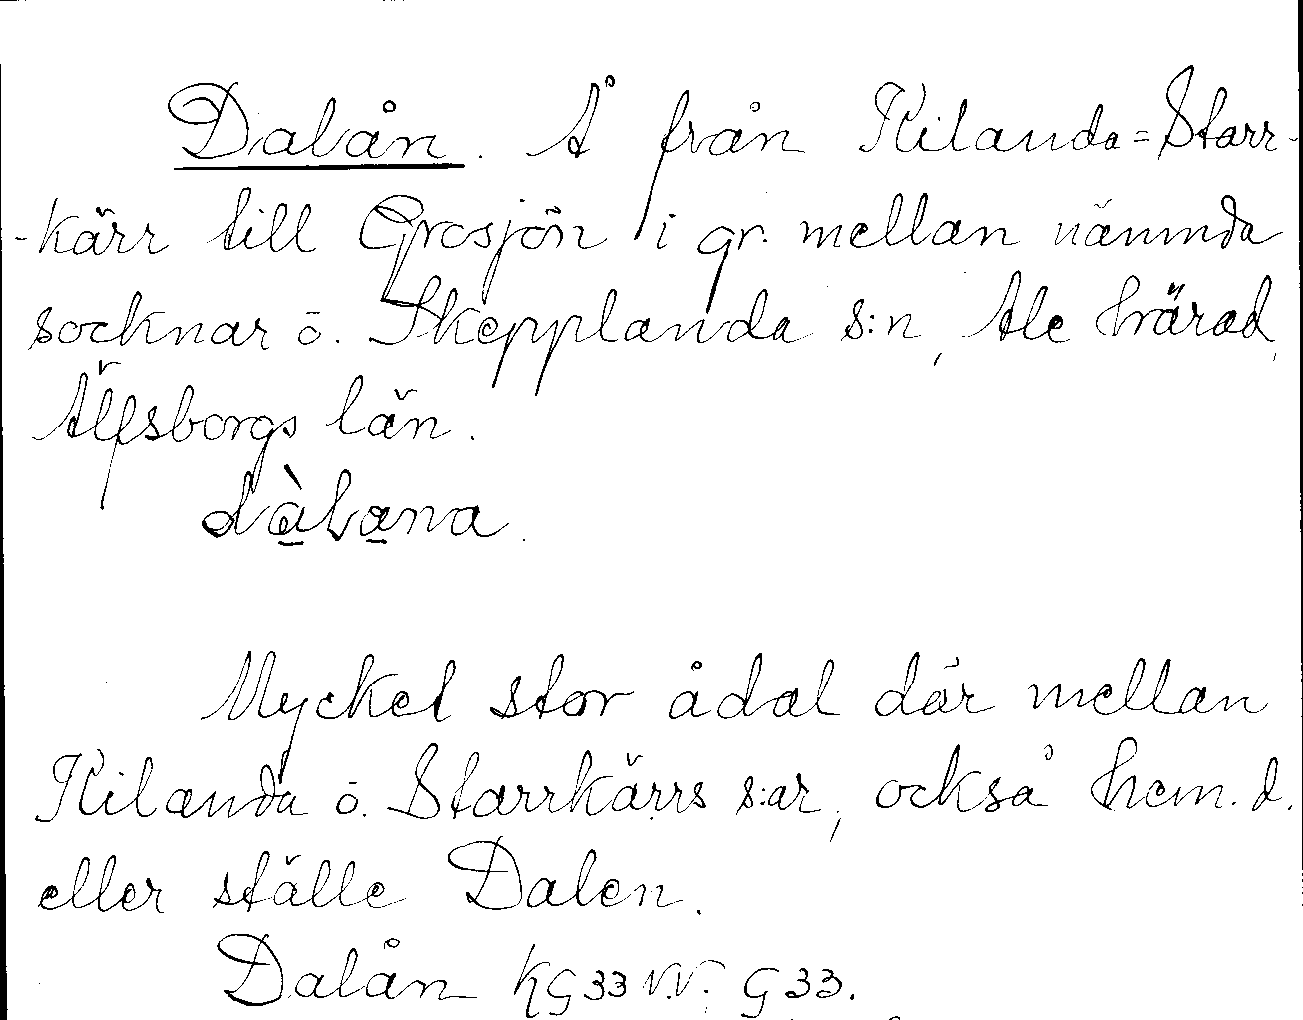 Dalån. Å från Kilanda=Starr-
-kärr till Grosjön i gr. mellan nämnda
socknar o. Skepplanda s:n, Ale härad,
Älfsborgs län.
dàlana.
Mycket stor ådal där mellan
Kilanda o. Starrkärrs s:ar, också hem. d.
eller ställe Dalen.
Dalån KG33 N.V. G33.